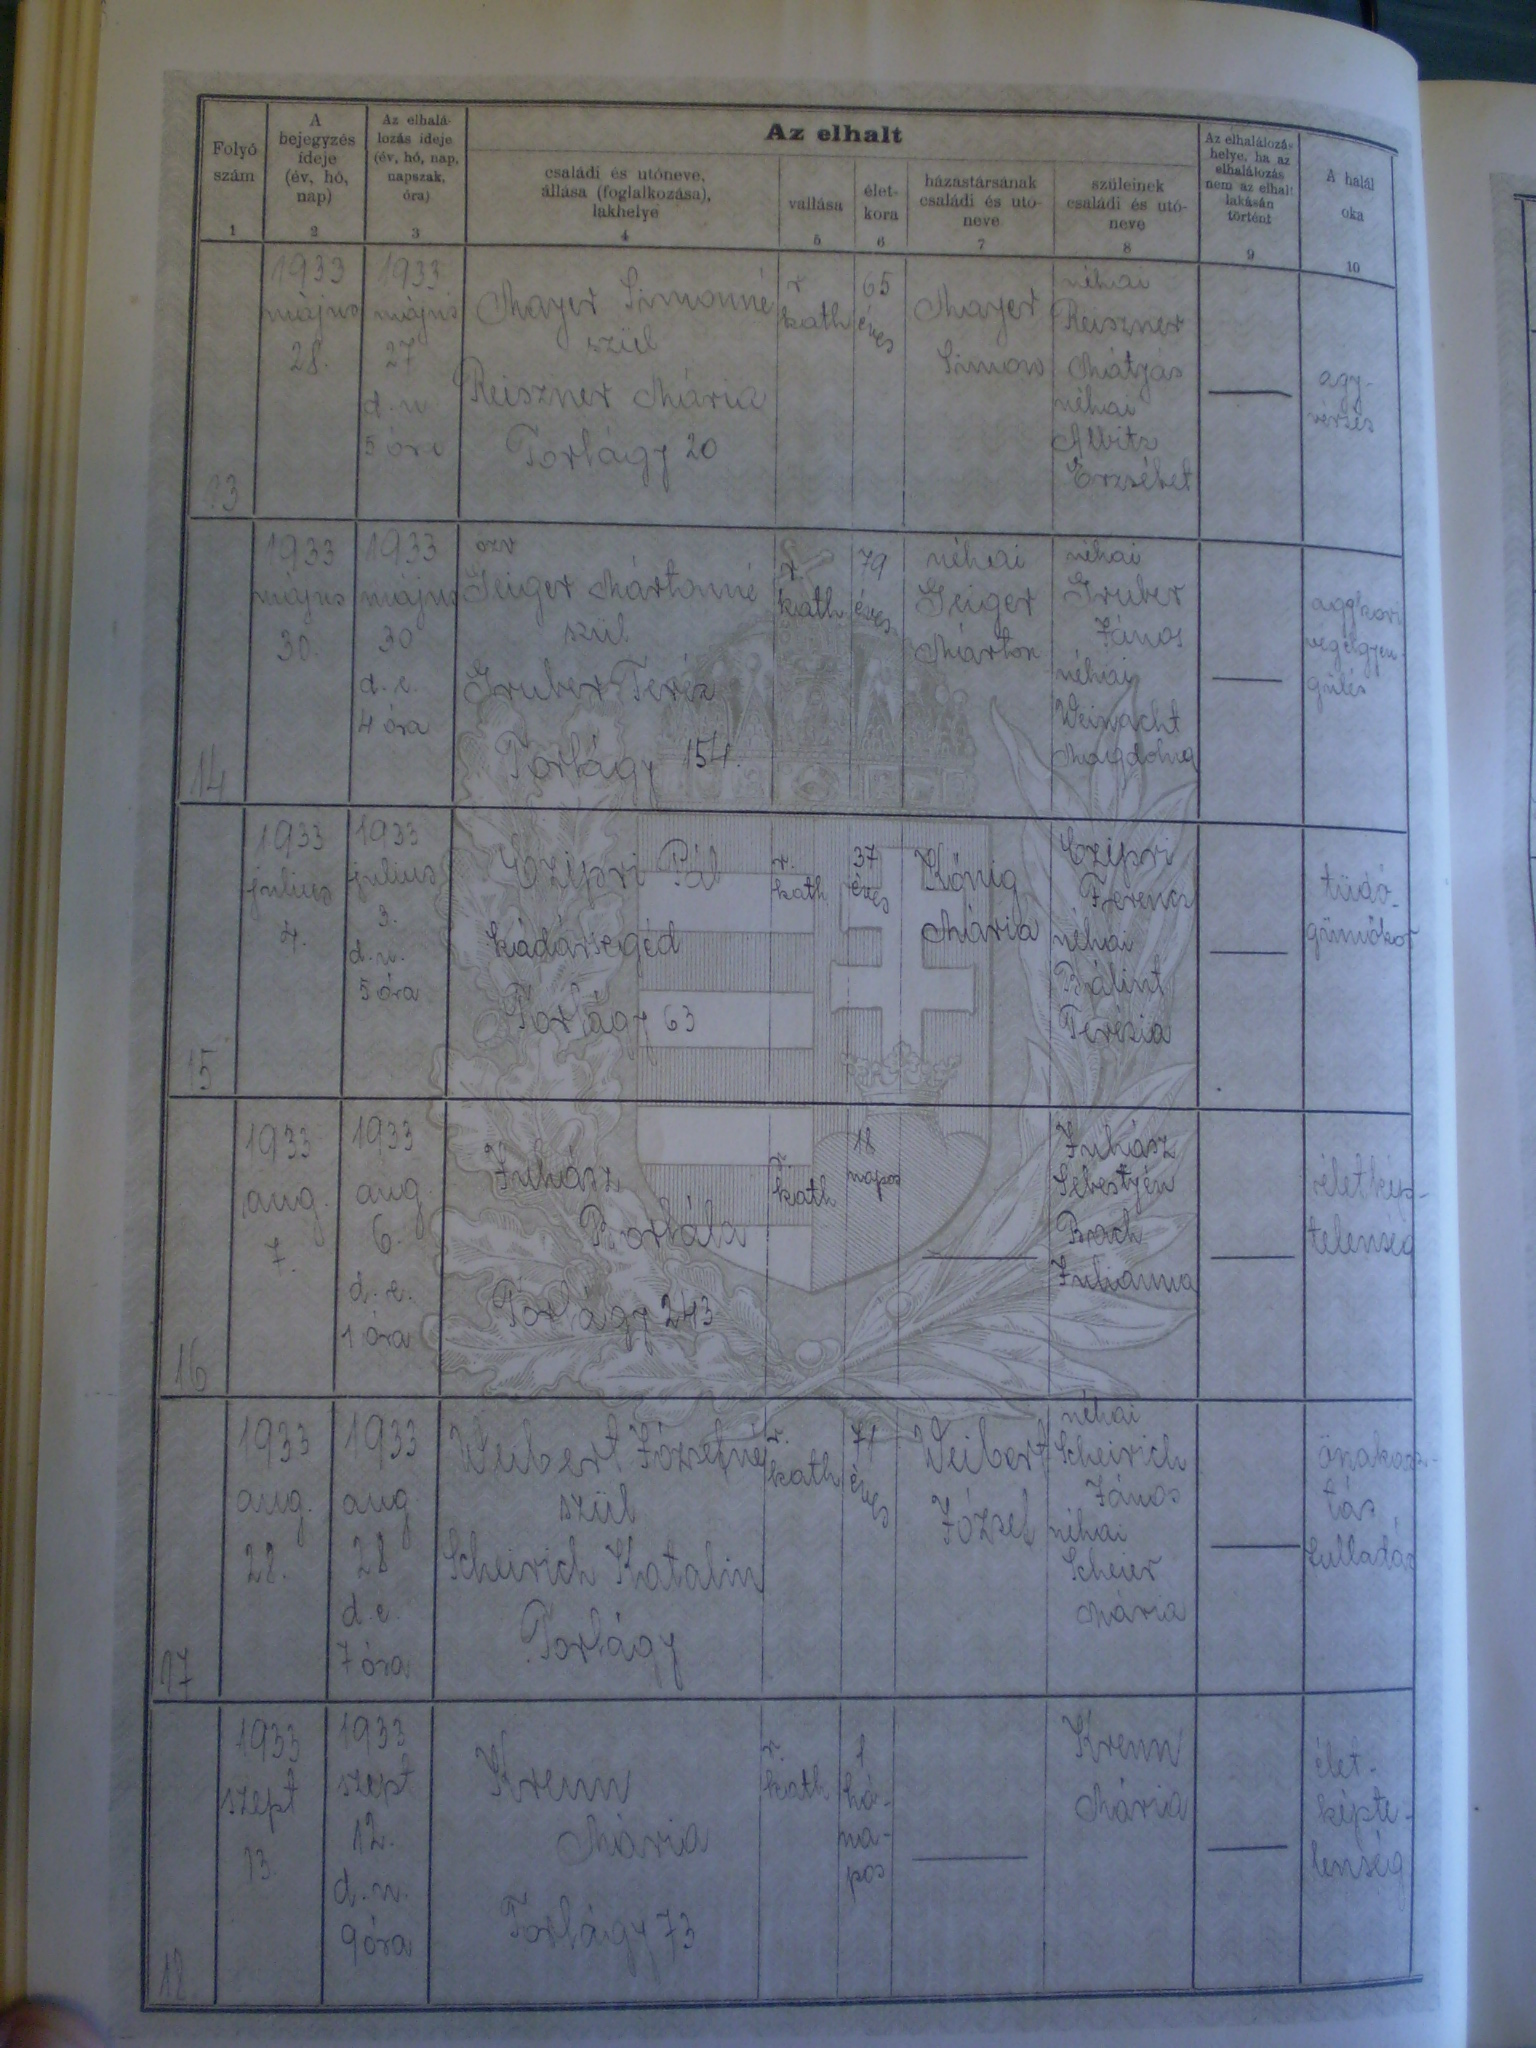 Folyó
szám
1
A
bejegyzés
ideje
(év, hó,
nap)
2
Az elhalá-
lozás ideje
(év, hó, nap,
napszak,
óra)
3
Az elhalt
családi és utóneve,
állása (foglalkozása),
lakhelye
4
vallása
5
élet-
kora
6
házastársának
családi és utó-
neve
7
szüleinek
családi és utó-
neve
8
Az elhalálozás
helye, ha az
elhalálozás
nem az elhalt
lakásán
történt
9
A halál
oka
10
13
1933
május
28.
1933
május
27
d. u
5 óra
Mayer Simonné
szül
Reiszner Mária
Torbágy 20
r
kath
65
éves
Mayer
Simon
néhai
Reiszner
Mátyás
néhai
Albitz
Erzsébet
agy-
vérzés
14
1933
május
30.
1933
május
30
d. e.
4 óra
özv
Geiger Mártonné
szül
Gruber Teréz
Torbágy 154.
r
kath
79
éves
néhai
Geiger
Márton
néhai
Gruber
János
néhai
Weinacht
Magdolna
aggkori
végelgyen-
gülés
15
1933
julius
4.
1933
julius
3.
d. u.
5 óra
Czipri Pál
kádársegéd
Torbágy 63
r.
kath
37
éves
König
Mária
Czipri
Ferencz
néhai
Bálint
Terézia
tüdő-
gümőkor
16
1933
aug.
7.
1933
aug
6.
d. e.
1 óra
Juhász
Borbála
Torbágy 243
r.
kath
18
napos
Juhász
Sebestyén
Brach
Julianna
életkép-
telenség
17
1933
aug.
28.
1933
aug
28
d. e.
7 óra
Weibert Józsefné
szül
Scheirich Katalin
Torbágy
r.
kath
71
éves
Weibert
József
néhai
Scheirich
János
néhai
Scheier
Mária
önakasz-
tás
fulladás
18.
1933
szept
13.
1933
szept
12.
d. u.
9 óra
Krenn
Mária
Torbágy 73
r.
kath
1
hó-
na-
pos
Krenn
Mária
élet-
képte-
lenség